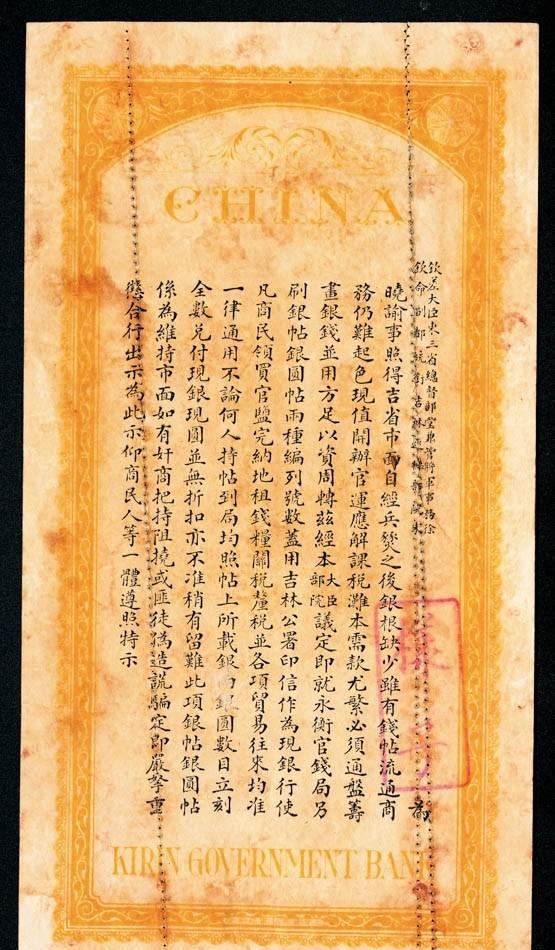 CHINA
欽差大臣東三省總督部堂兼管將軍事務徐
欽命副都統銜吉林巡撫部院朱
為
曉諭事照得吉省市面自經兵燹之後銀根缺少雖有錢帖流通商
務仍難起色現值開辦官運應解課稅灘本需款尤繁必須通盤籌
畫銀錢並用方足以資周轉茲經本大臣部院議定即就永衡官錢局另
刷銀帖銀圓帖兩種編列號數蓋用吉林公署印信作為現銀行使
凡商民領買官鹽完納地租錢糧關稅釐稅並各項貿易往來均准
一律通用不論何人持帖到局均照帖上所載銀兩銀圓數目立刻
全數兌付現銀現圓並無折扣亦不准稍有留難此項銀帖銀圓帖
係為維持市面如有奸商把持阻撓或匪徒猧造謊騙定即嚴拏重
懲合行出示為此示仰商民人等一體遵照特示
KIRIN GOVERNMENT BANK